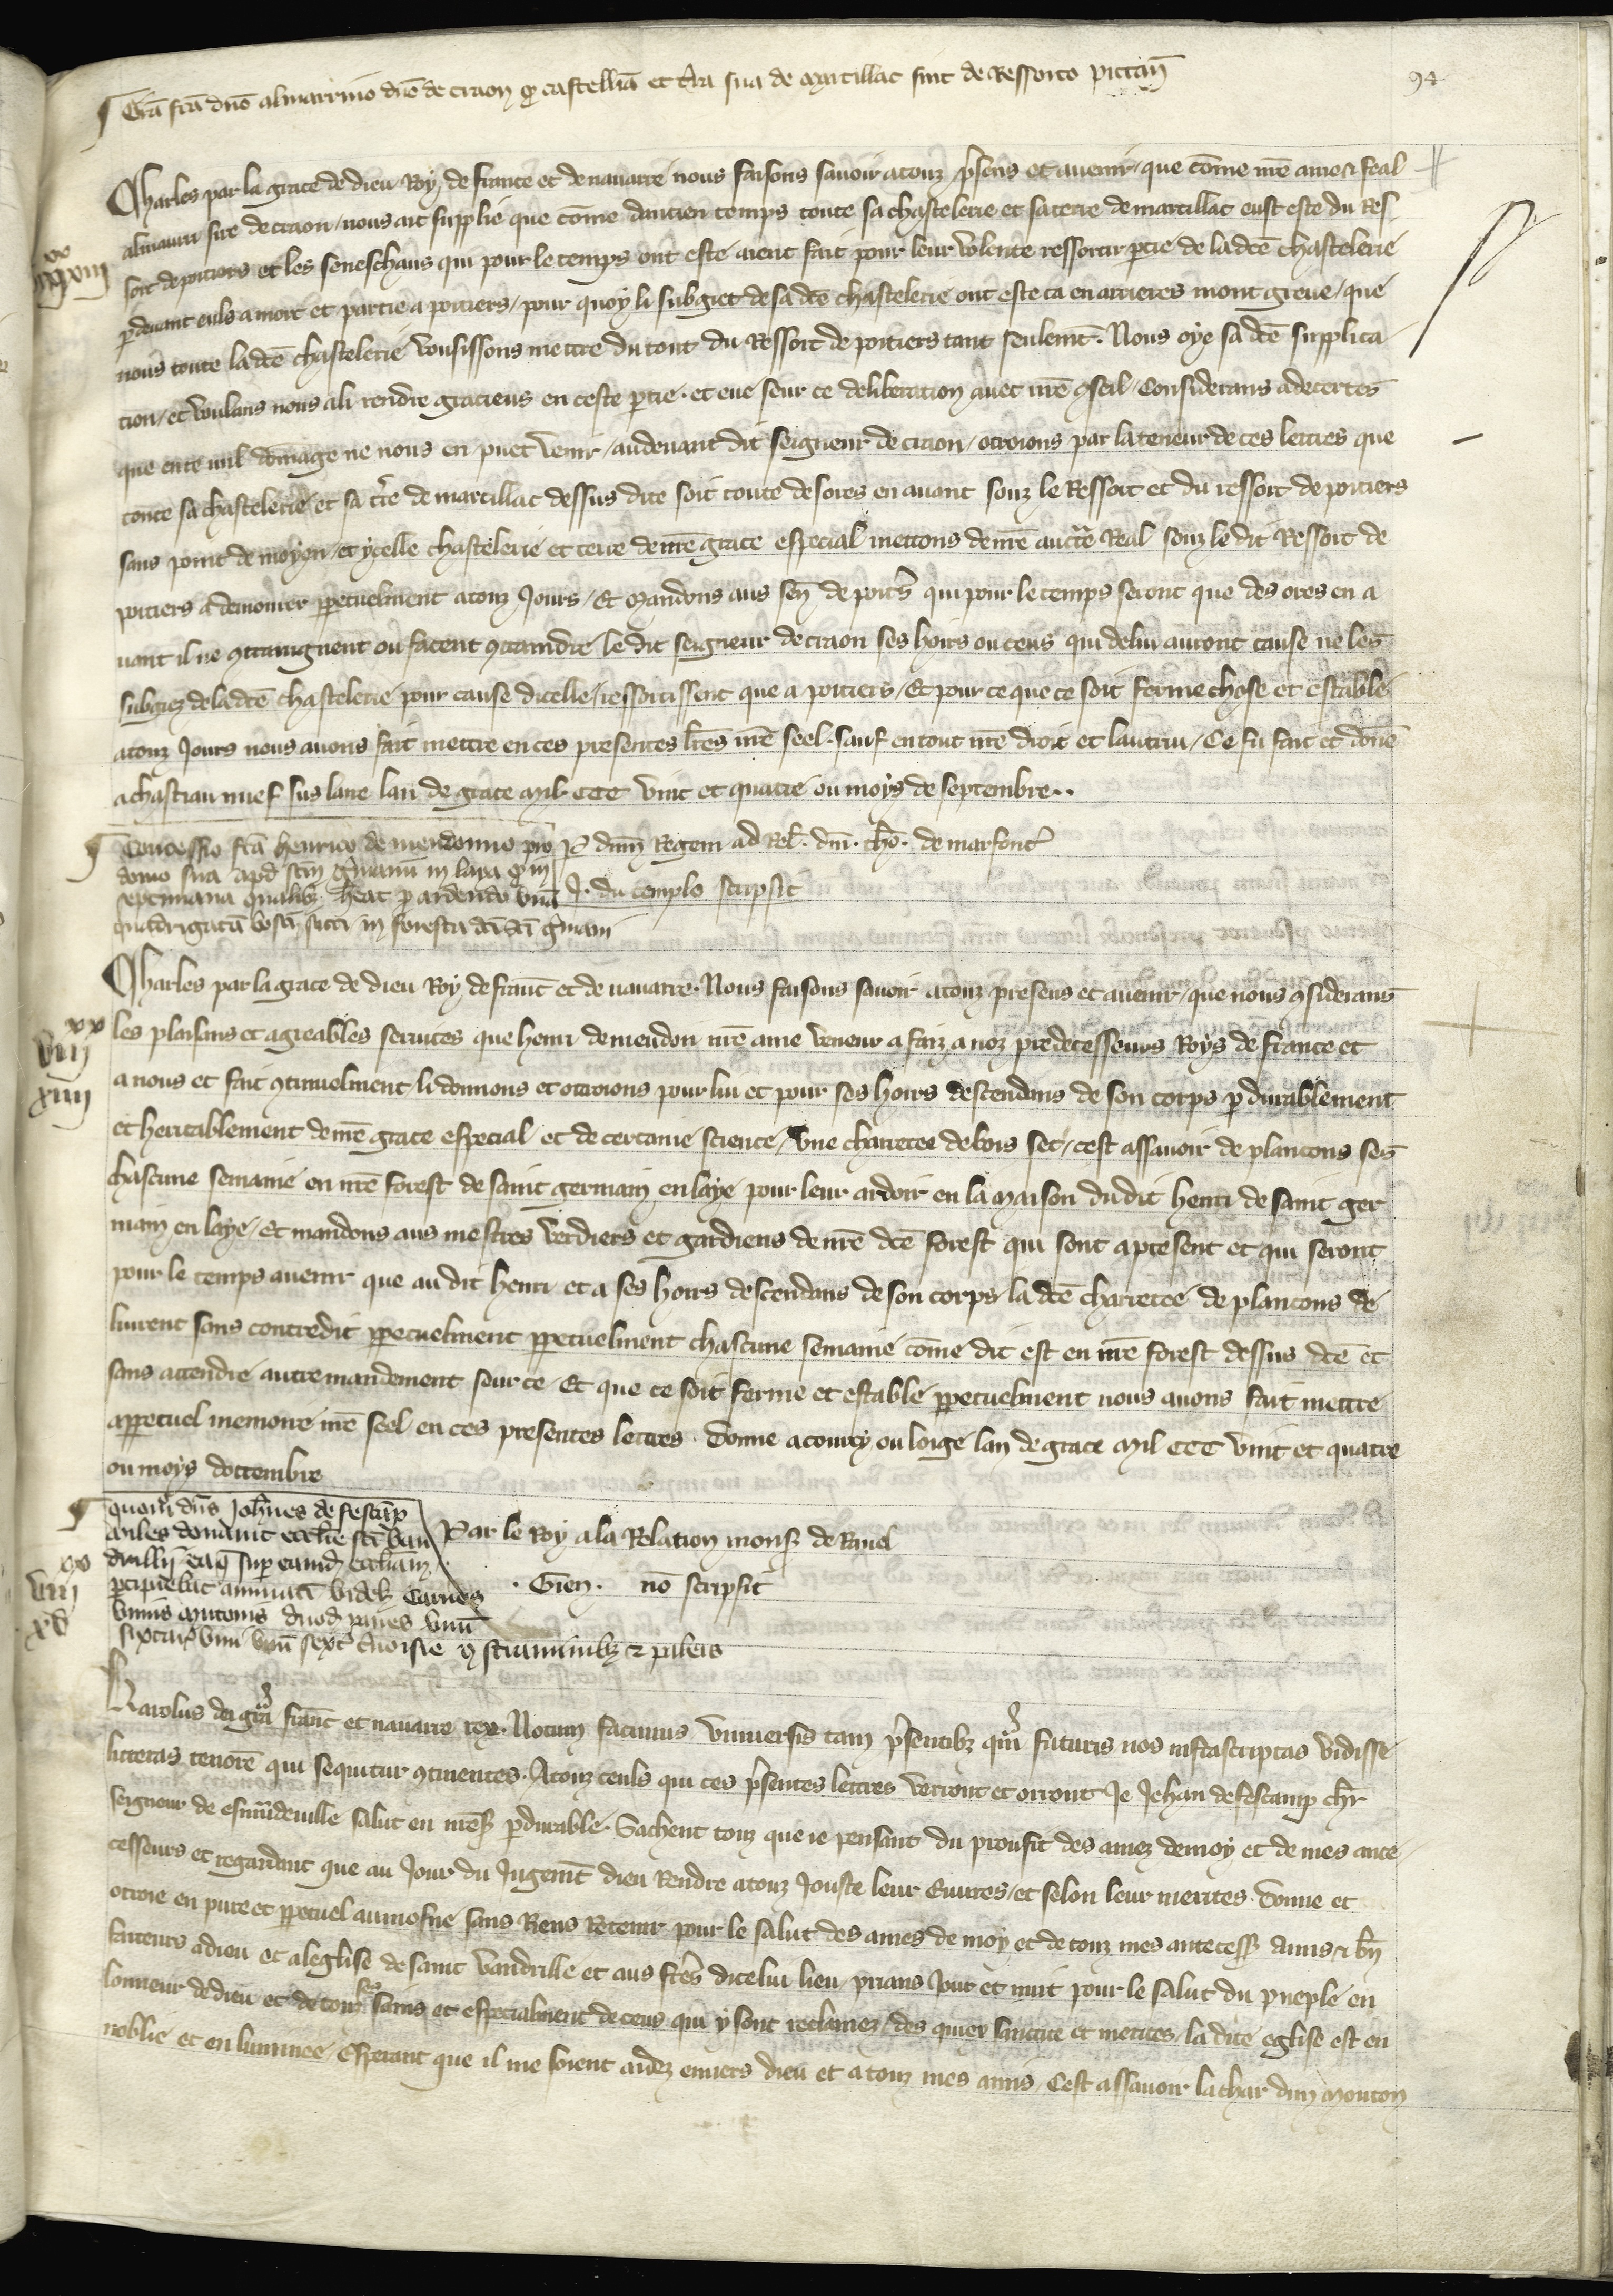 94
Gra͞ fca͞ dno͞ almarrico dno͞ de craon qͥ castellia͞ et t̉ra sua de Marcillac sint de Ressorto pictan͞
Charles par la grace de dieu Roy de france et de nauarre nous faisons sauoir a touz p̉sens et auenir / que co͞me nr͞e ame & feal
almaurri sire de craon / nous ait supplie que co͞me dancien temps toute sa chastelerie et sa terre de marcillac eust este du Res
sort de poitiers et les seneschaus qui pour le temps ont este aient fait pour leur volente ressortir ꝑtie de la dce͞ chastelerie
ꝑdeuant euls a mort et partie a poitiers / pour quoy li subgiet de sa dce͞ chastelerie ont este ca en arrieres mont greue / que
nous toute la dce͞ chastelerie vousissons mettre du tout du Ressort de poitiers tant seulemt͞. Nous oye sa dce͞ supplica
tion / et voulans nous a li rendre gracieus en ceste ꝑtie. et eue seur ce deliberation auec nr͞e ꝯseil / Considerans adecertes
que en ce nul do͞mage ne nous en puet venir / au deuant dit seigneur de craon / otroions par la teneur de ces lettres que
toute sa chastelerie et sa t̉re de marcillac dessus dite soit toute desores en auant souz le Ressort et du ressort de poitiers
sans point de moyen / et ycelle chastelerie et terre de nr͞e grace especial mettons de nr͞e auct̃e Real souz le dit Ressort de
poitiers a demourer ꝑpetuelment a touz Jours / Et Mandons aus sen͞ de poit̉s qui pour le temps seront que des ores en a
uant il ne ꝯtraignent ou facent ꝯtraindre le dit seigneur de craon ses hoirs ou ceus qui de lui auront cause ne les
subgiez de la dce͞ chastelerie pour cause dicelle / ressortissent que a poitiers / Et pour ce que ce soit ferme chose et estable
a touz Jours nous auons fait mettre en ces presentes lr͞es nr͞e seel. sauf en tout nr͞e droit et lautrui / Ce fu fait et don͞e
a chastiau nuef sus laire lan de grace Mil CCC vint et quatre ou moys de septembre..
Concessio fca͞ henrico de meudonno pro
P̲ dnm͞ Regem ad Rel͞. dni͞. th͞o. de marfont̉
domo sua apd͞ scm͞ g̉manum in laya qͥ in
septimana qualibꝫ he͞at p̱ ardendo vna͞
J. du templo scripsit
quadrigata͞ bosci sicci in foresta dci͞ sci͞ g̉mani
Charles par la grace de dieu Roy de franc͞ et de nauarre. Nous faisons sauoir a touz presens et auenir / que nous ꝯsiderans
xx
viii
xiiii
les plaisans et agreables seruices que henri de meudon nr͞e ame veneur a faiz a noz predecesseurs Roys de france et
a nous et fait ꝯtinuelment li donnons et otroions pour lui et pour ses hoirs descendans de son corps ꝑdurablement
et heritablement de nr͞e grace especial et de certaine science / vne charretee de bois sec / cest assauoir de plancons ses
chascune semaine en nr͞e forest de saint germain en laye pour leur ardoir en la Maison du dit henri de saint ger
main en laye / Et mandons aus mestres verdiers et gardiens de nr͞e dce͞ forest qui sont a present et qui seront
pour le temps auenir que au dit henri et a ses hoirs descendans de son corps la dce͞ charretee de plancons de
liurent sans contredit ꝑpetuelment ꝑpetuelment chascune semaine co͞me dit est en nr͞e forest dessus dce͞ et
sans attendre autre mandement seur ce. Et que ce soit ferme et estable ꝑpetuelment nous auons fait mettre
a ꝑpetuel memoire nr͞e seel en ces presentes lettres. donne a courcy ou loige lan de grace Mil CCC vint et quatre
ou moys doctembre
quom͞ dns͞ Joh͞nes de fescamp
miles donauit eccl͞ie sci͞ van
Par le Roy a la Relation mons͞ de Rauel
drillis ea q̄ sup eamd͞ eccl͞iam
xx
viii
xv
ꝑcipiebat annuati͞ videl͞ Carnes
. Gien. no͞ scripsit
vnius Mutonis duod͞ panes vnu͞
sextar͞ vini vnu͞ sext̉ ceruoisie ꝯ straminibꝫ & paleis
Karolus dei gra͞ franc͞ et nauarre rex. Notum facimus vniuersis tam p̉sentibꝫ qua͞ futuris nos infrascriptas vidisse
litteras tenore͞ qui sequitur ꝯtinentes. A touz ceuls qui ces p̉sentes lettres verront et orront Je Jehan de fescamp chr͞
seigneur de esmudeuille salut en nr͞es͞ ꝑdurable. Sachent touz que ie pensant du proufit des amez de moy et de mes ante
cesseurs et regardant que au Jour du Jugemt͞ dieu Rendre a touz Jouste leur Euures / et selon leur merites. donne et
otroie en pure et ꝑpetuel aumosne sans Riens Retenir pour le salut des ames de moy et de touz mes antecess͞ Amis & bn͞
faiteurs a dieu et a leglise de saint vandrille et aus fr̉es dicelui lieu / prians Jour et nuit pour le salut du pueple en
lonneur de dieu et de touz ses sains et especialment de ceus qui y sont reclamez / des quiex sainctite et merites / la dite eglise est en
noblie et en luminee / Esperant que il me soient aidez enuers dieu et a touz mes amis / Cest assauoir la char dun Mouton